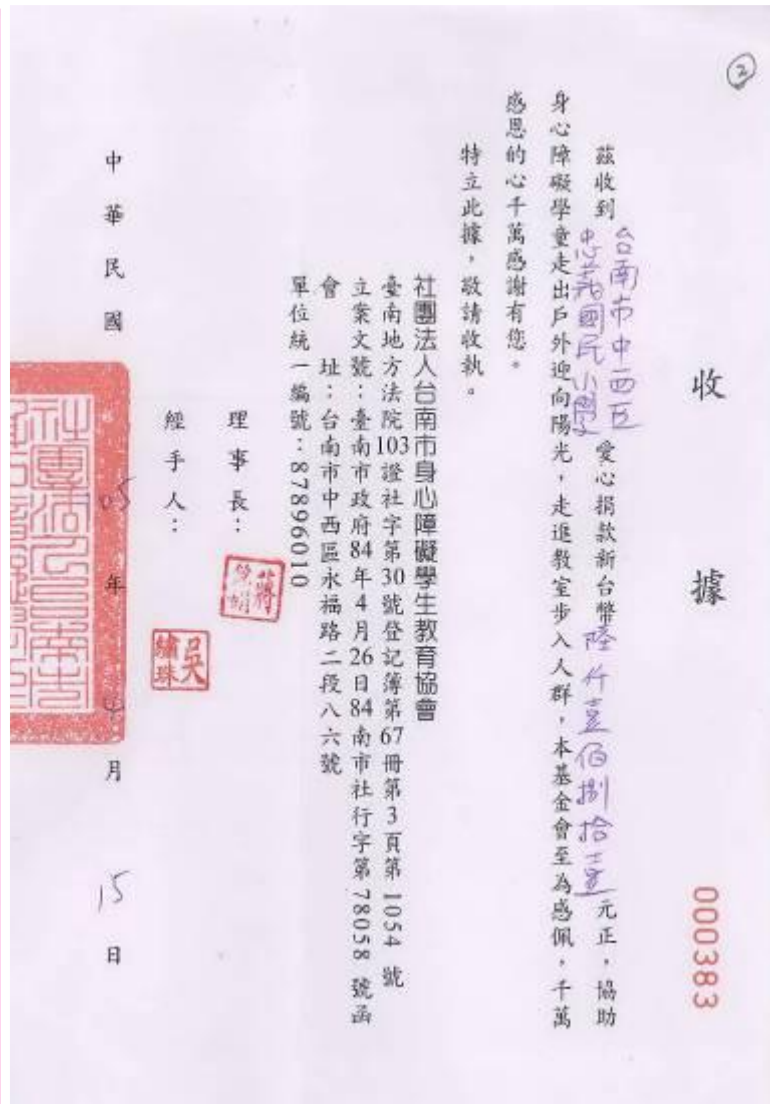 ②
收據
000383
茲收到台南市中西區忠義國民小學愛心捐款新台幣陸仟壹佰捌拾壹元正，協助
身心障礙學童走出戶外迎向陽光，走進教室步入人群，本基金會至為感佩，千萬
感恩的心千萬感謝有您。
特立此據，敬請收執。
社團法人台南市身心障礙學生教育協會
臺南地方法院103證社字第30號登記簿第67冊第3頁第1054號
立案文號：臺南市政府84年4月26日84南市社行字第78058號函
會址：台南市中西區永福路二段八六號
單位統一編號：87896010
理事長：
蔣
經手人：
吳繡珠
中華民國 05年 月 15日
社團法人台南市